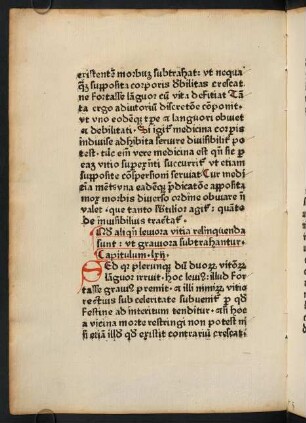 existentē morbuꝫ subtrahat: vt nequa
q̃ꝫ supposita corporis dʼbilitas crescat
ne fortasse lãguor cũ vita dʼficiat Tã
ta ergo adiutoriũ discretõe cõponit ·
vt vno eodēqꝫ tꝑe ⁊ languori obuiet
⁊ debilitati · Si igit᷑ medicina corpis
indiuise adhibita seruire diuisibilit᷑ po
test · tūc em̃ vere medicina est qñ sic ꝑ
eam vitio supex̃nti succurrit᷑ vt etiam
supposite cõspersioni seruiat Cur me
dicina mētiũ vna eadēqꝫ p̃dicatõe apposita
mox morbis diuerso ordine obuiare ñ
valet · que tanto subtilior agit᷑: quãto
de inuisibilibus tractat᷑ ·
Qʼd aliqñ leuiora vitia relinquenda
sunt: vt grauiora subtrahantur.
Capitulum · lxij ·
Sed qꝛ plerunqꝫ dũ duoꝝ vitioꝝ
lãguor irruit · hoc leuiꝰ: illud for
tasse grauiꝰ premit · ⁊ illi nimiꝝ vitio
rectius sub celeritate subuenit᷑ ꝑ qʼd
festine ad interitum tenditur · ⁊ si hoc
a vicina morte restringi non potest ni
si etiã illʼd qʼd existit contrariũ crescat: